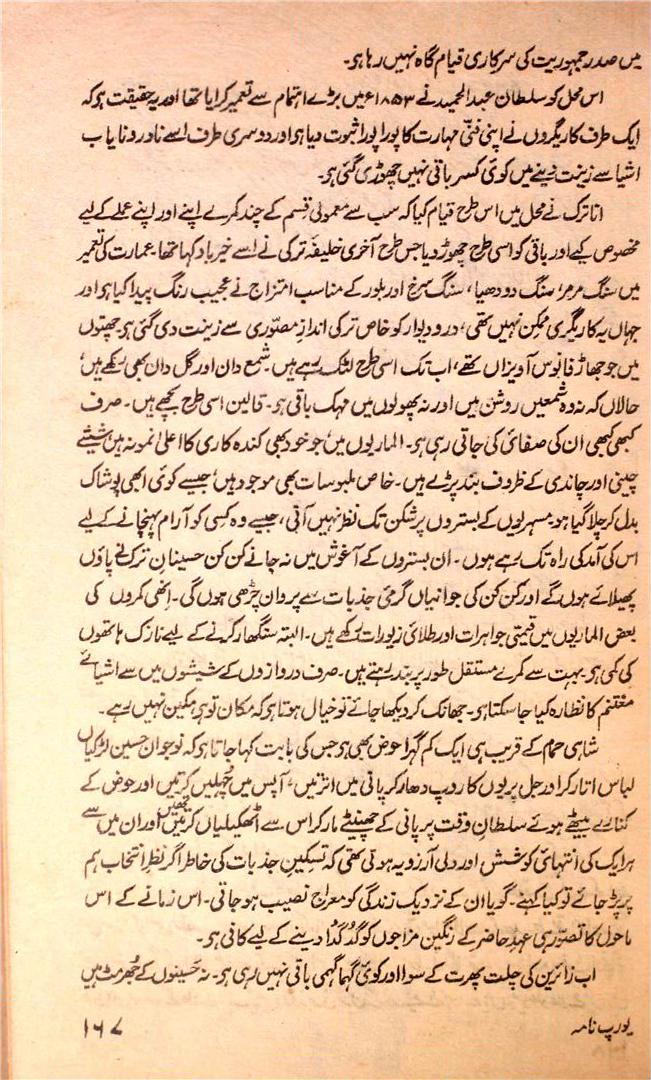 میں صدر جمہوریت کی سرکاری قیام گاہ نہیں رہا ہو۔
اس محل کو سلطان عبدالحمید نے ۱۸۵۳ء میں بڑے اہتمام سے تعمیر کرایا تھا اور یہ حقیقت ہو کہ
ایک طرف کاریگروں نے اپنی فنّی مہارت کا پورا پورا ثبوت دیا ہو اور دوسری طرف اسے نادر و نایاب
اشیا سے زینت دینے میں کوئی کسر باقی نہیں چھوڑی گئی ہو۔
اتاترک نے محل میں اس طرح قیام کیا کہ سب سے معمولی قسم کے چند کمرے اپنے اور اپنے عملے کے لیے
مخصوص کیے اور باقی کو اسی طرح چھوڑ دیا جس طرح آخری خلیفۂ ترکی نے اسے خیرباد کہا تھا۔ عمارت کی تعمیر
میں سنگ مرمر، سنگ دودھیا، سنگ سرخ اور بلور کے مناسب امتزاج نے عجیب رنگ پیدا کیا ہو اور
جہاں یہ کاریگری ممکن نہیں تھی، در و دیوار کو خاص ترکی انداز مصوّری سے زینت دی گئی ہو۔ چھتوں
میں جو جھاڑ فانوس آویزاں تھے، اب تک اسی طرح لٹک رہے ہیں۔ شمع دان اور گل دان بھی رکھے ہیں،
حالاں کہ نہ وہ شمعیں روشن ہیں اور نہ پھولوں میں مہک باقی ہو۔ قالین اسی طرح بچھے ہیں۔ صرف
کبھی کبھی ان کی صفائی کی جاتی رہی ہو۔ الماریوں میں، جو خود بھی کندہ کاری کا اعلیٰ نمونہ ہیں شیشے
چینی اور چاندی کے ظروف بند پڑے ہیں۔ خاص ملبوسات بھی موجود ہیں، جیسے کوئی ابھی پوشاک
بدل کر چلا گیا ہو۔ مسہریوں کے بستروں پر شکن تک نظر نہیں آتی، جیسے وہ کسی کو آرام پہنچانے کے لیے
اس کی آمد کی راہ تک رہے ہوں۔ ان بستروں کے آغوش میں نہ جانے کن کن حسینانِ ترک نے پاؤں
پھیلائے ہوں گے اور کن کن کی جوانیاں گرمئ جذبات سے پروان چڑھی ہوں گی۔ انھی کمروں کی
بعض الماریوں میں قیمتی جواہرات اور طلائی زیورات رکھے ہیں۔ البتہ سنگھار کرنے کے لیے نازک ہاتھوں
کی کمی ہو۔ بہت سے کمرے مستقل طور پر بند رہتے ہیں۔ صرف دروازوں کے شیشوں میں سے اشیائے
مغتنم کا نظارہ کیا جا سکتا ہو۔ جھانک کر دیکھا جائے تو خیال ہوتا ہو کہ مکان تو ہو، مکین نہیں رہے۔
شاہی حمام کے قریب ہی ایک کم گہرا حوض بھی ہو جس کی بابت کہا جاتا ہو کہ نوجوان حسین لڑکیاں
لباس اتار کر اور جل پریوں کا روپ دھار کر پانی میں اترتیں، آپس میں چُہلیں کرتیں اور حوض کے
کنارے بیٹھے ہوئے سلطانِ وقت پر پانی کے چھینٹے مار کر اس سے اٹھکیلیاں کرتیں تھیں اور ان میں سے
ہر ایک کی انتہائی کوشش اور دلی آرزو یہ ہوتی تھی کہ تسکینِ جذبات کی خاطر اگر نظرِ انتخاب ہم
پر پڑ جائے تو کیا کہنے۔ گویا ان کے نزدیک زندگی کو معراج نصیب ہو جاتی۔ اس زمانے کے اس
ماحول کا تصوّر ہی عہدِ حاضر کے رنگین مزاجوں کو گُدگُدا دینے کے لیے کافی ہو۔
اب زائرین کی چلت پھرت کے سوا اور کوئی گہما گہمی باقی نہیں رہی ہو۔ نہ حسینوں کے جُھرمٹ ہیں
یورپ نامہ
۱۶۷